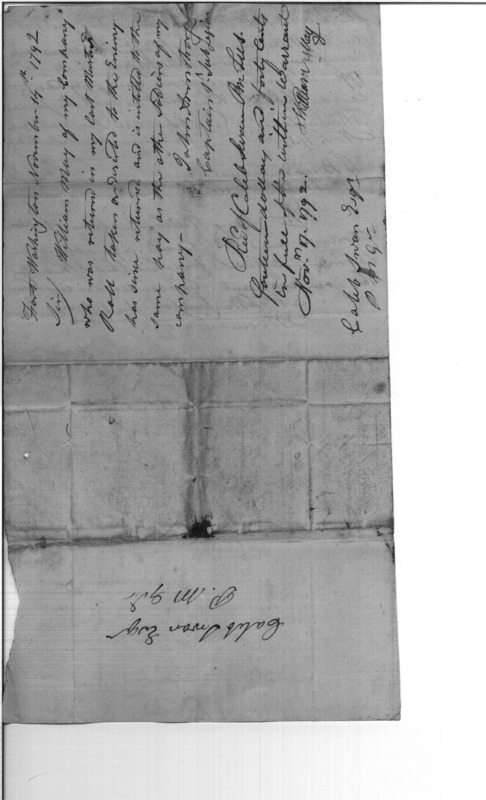 Fort Washington November 14th 1792
Sir/ William May of my Company
who was returned in my last Muster
Roll taken or deserted to the Enemy
has since returned and is intitled to the
same pay as the other Soldiers of my
company—
John Armstrong
Captain 1st Sub Legion
Recd of Caleb Swan P M
dollars and forty Cents
in full of the within Warrant
Novm 17. 1792.
William May
Caleb Swan Esqr
P M G
Caleb Swan Esqr
P. M Genl